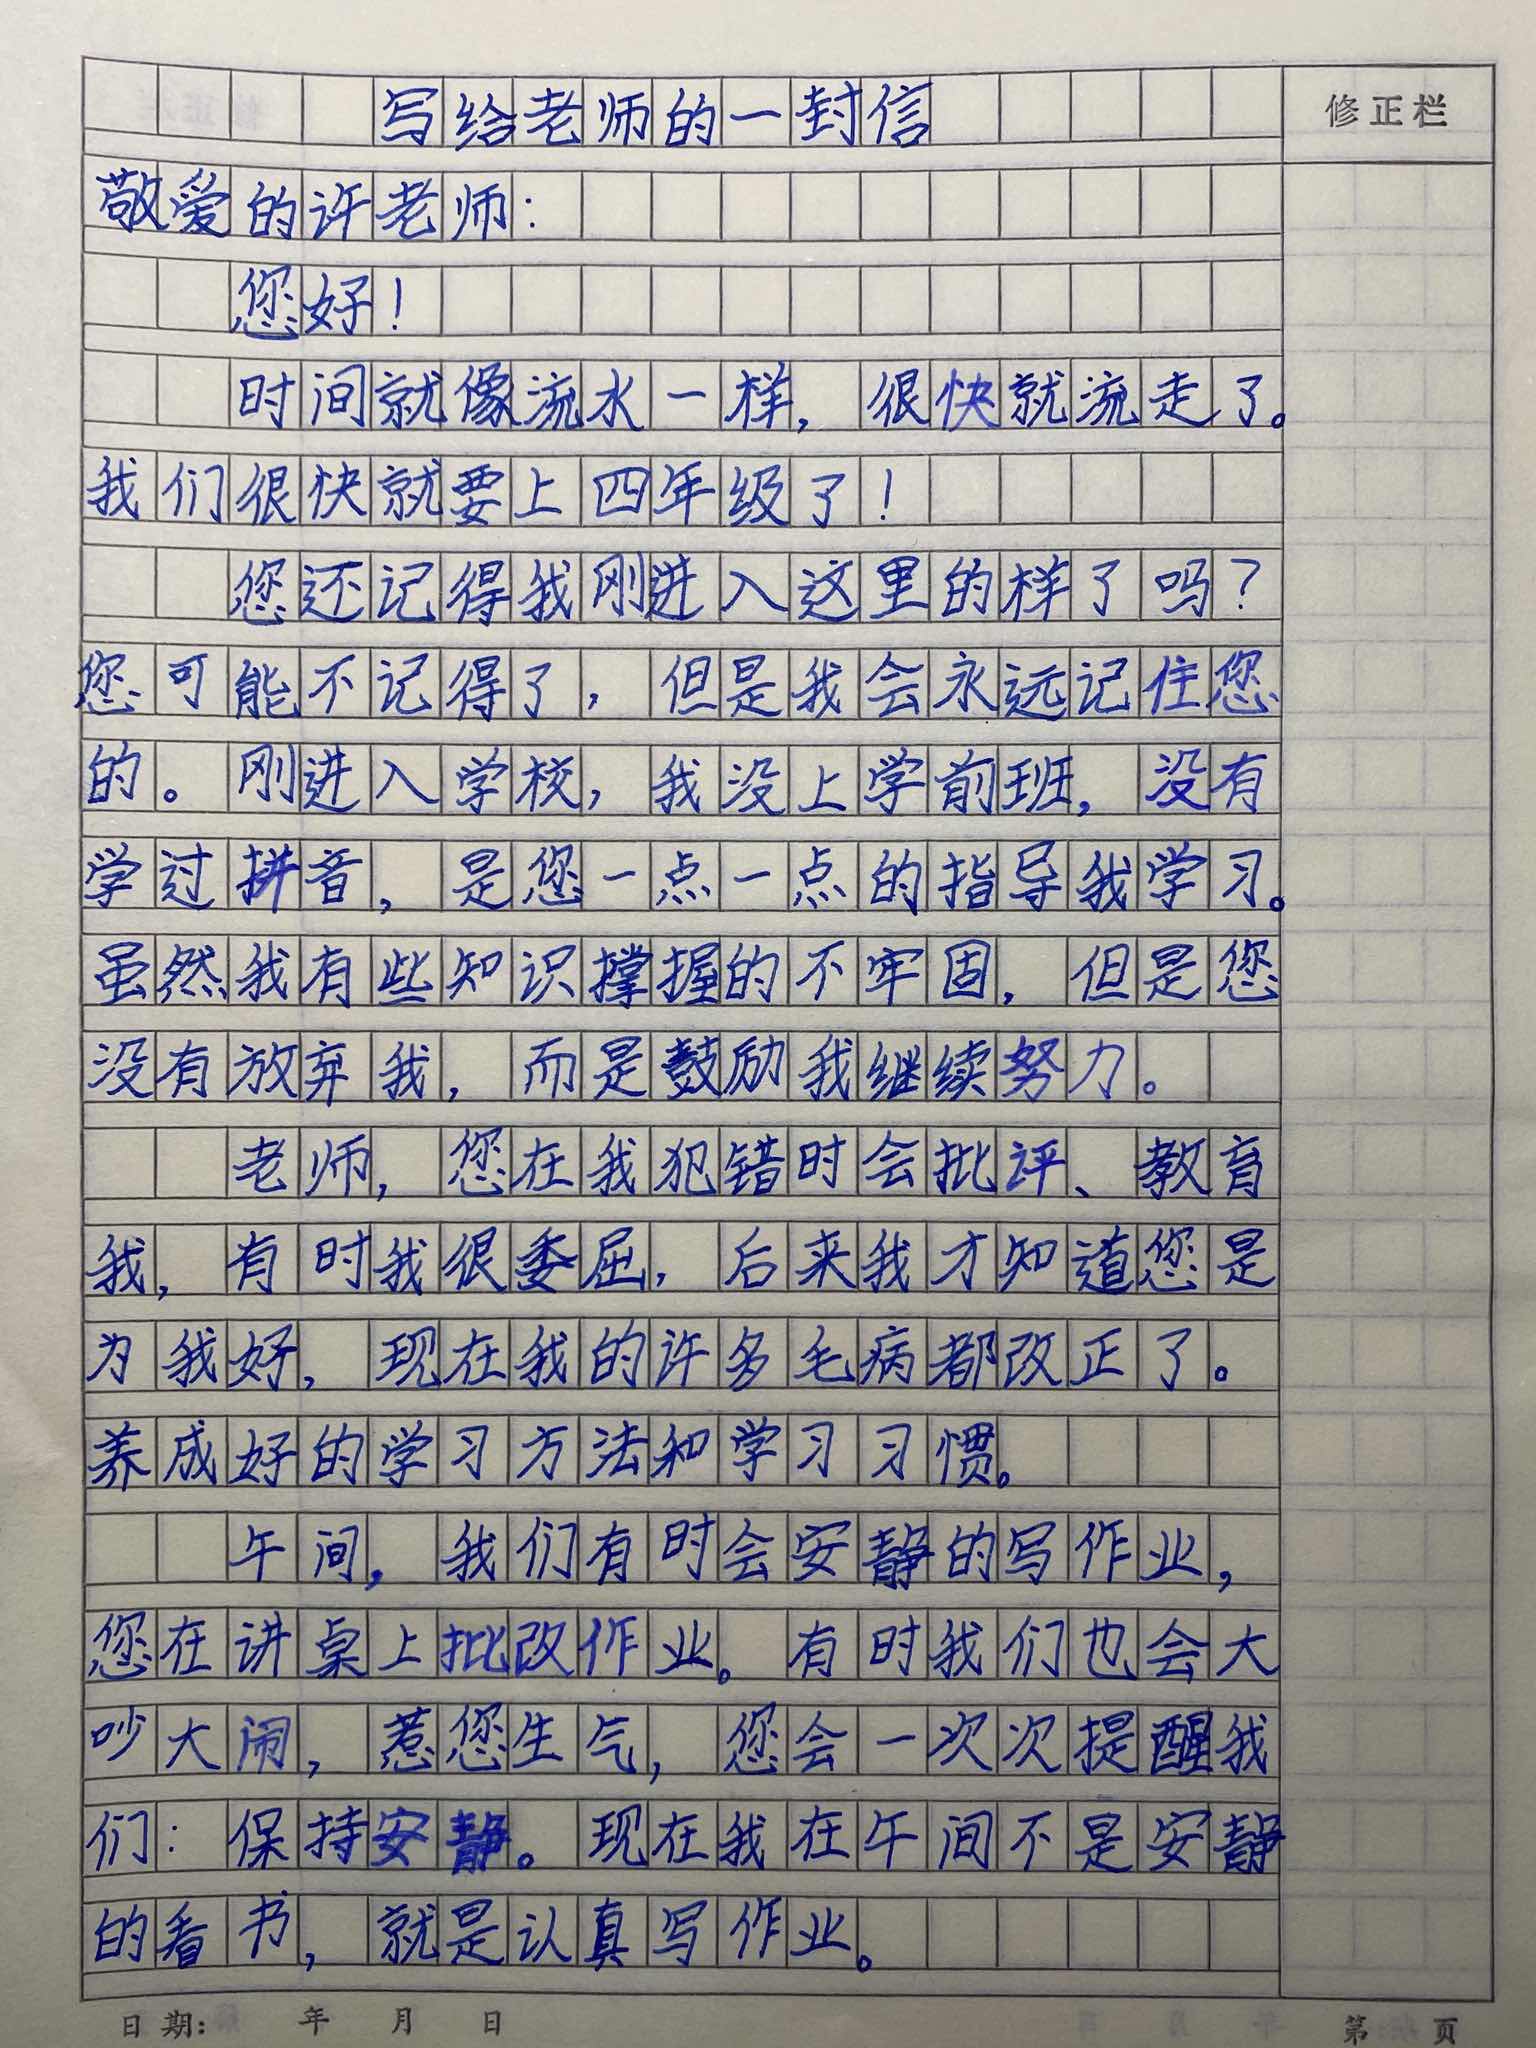 写给老师的一封信
修正栏
敬爱的许老师：
您好！
时间就像流水一样，很快就流走了。
我们很快就要上四年级了！
您还记得我刚进入这里的样了吗？
您可能不记得了，但是我会永远记住您
的。刚进入学校，我没上学前班，没有
学过拼音，是您一点一点的指导我学习。
虽然我有些知识撑握的不牢固，但是您
没有放弃我，而是鼓励我继续努力。
老师，您在我犯错时会批评、教育
我，有时我很委屈，后来我才知道您是
为我好，现在我的许多毛病都改正了。
养成好的学习方法和学习习惯。
午间，我们有时会安静的写作业，
您在讲桌上批改作业。有时我们也会大
吵大闹，惹您生气，您会一次次提醒我
们：保持安静。现在我在午间不是安静
的看书，就是认真写作业。
日期： 年 月 日
第 页